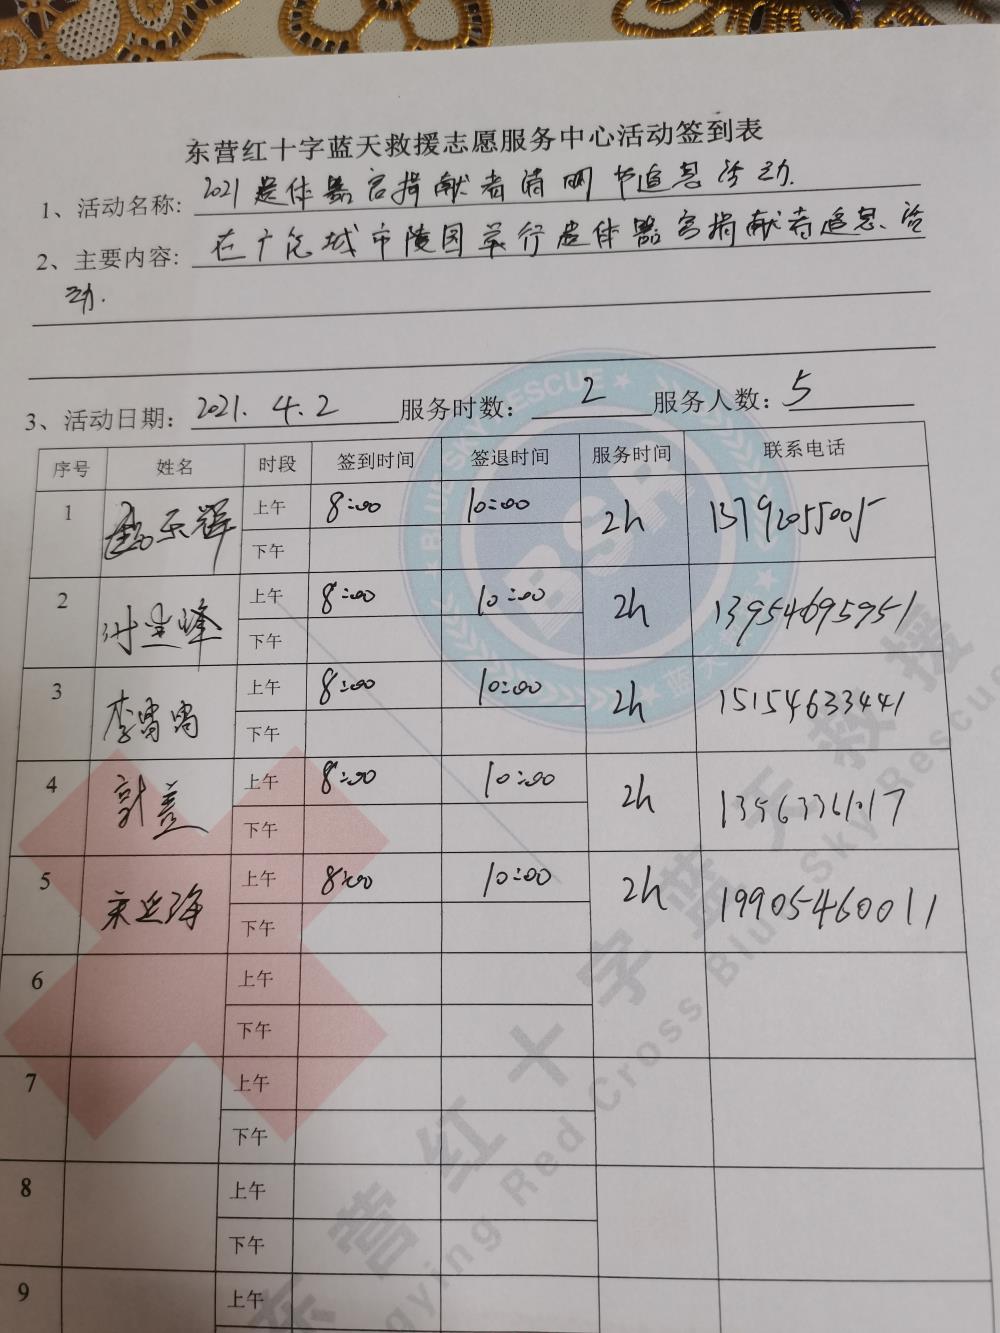 东营红十字蓝天救援志愿服务中心活动签到表
1、活动名称: 2021遗体器官捐献者清明节追思活动.
2、主要内容: 在广饶城市陵园举行遗体器官捐献者追思活
动.
3、活动日期: 2021.4.2 服务时数: 2 服务人数: 5
序号 姓名 时段 签到时间 签退时间 服务时间 联系电话
1 上午 8:00 10:00 2h 13792055005
下午
2 上午 8:00 10:00 2h 13954695951
下午
3 李雷雷 上午 8:00 10:00 2h 15154633441
下午
4 上午 8:00 10:00 2h
下午
5 上午 8:00 10:00 2h 19905460011
下午
6 上午
下午
7 上午
下午
8 上午
下午
9 上午
BLUE SKY RESCUE
BSR
东营红十字蓝天救援
Dongying Red Cross Blue Sky Rescue